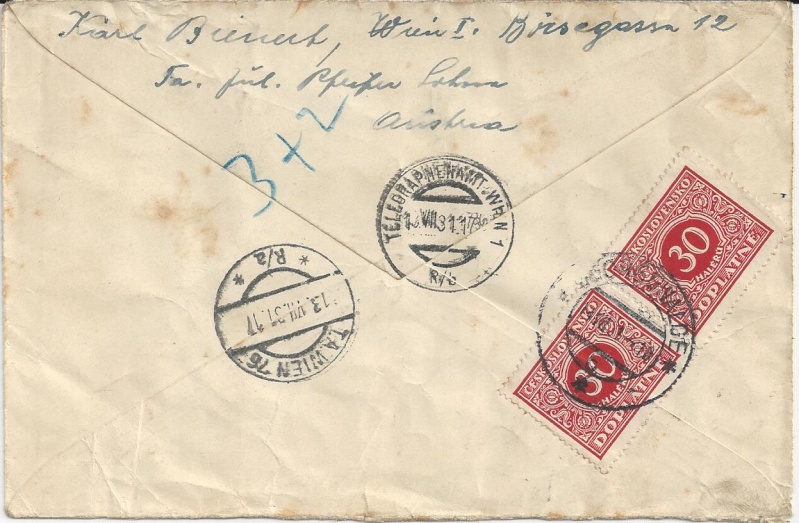 Karl Bienert, Wien I. Börsegasse 12
Fa. Jul. Pfeifer Sohn
Austria
3 + 2
TELEGRAPHENAMT WIEN 1
VII 31 17
R/a
* R/a *
13. VII. 31. 17
T.A. WIEN 76
ČESKOSLOVENSKO
30
HALÉŘŮ
DOPLATNÉ
ČESKOSLOVENSKO
30
HALÉŘŮ
DOPLATNÉ